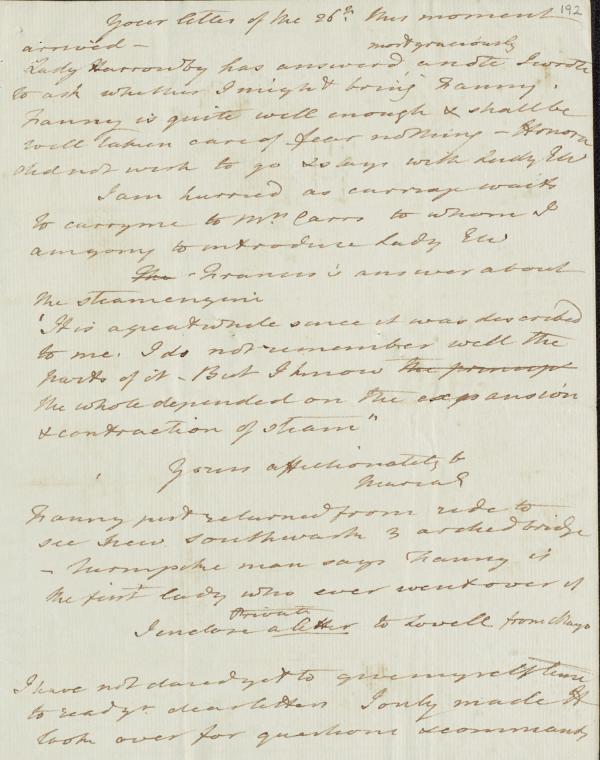 192
Your letter of the 26th. this moment
arrived –
most graciously
Lady Harrowby has answered a note I wrote
to ask whether I might bring Fanny.
Fanny is quite well enough & shall be
well taken care of fear nothing – Honora
did not wish to go & stays with Lady EW
I am hurried as carriage waits
to carry me to Mrs Carrs to whom I
am going to introduce Lady EW
The Francis's answer about
the steamengine
"It is a great while since it was described
to me. I do not remember well the
parts of it. But I know the principl
the whole depended on the expansion
& contraction of steam"
Yours affectionately
Maria E
Fanny just returned from ride to
see new Southwark 3 arched bridge
– turnpike man says Fanny is
the first lady who ever went over it
Private
I enclose a letter to Lovell from Mayo
I have not dared yet to give myself time
to read yr. dear letters I only made H
look over for questions & commands